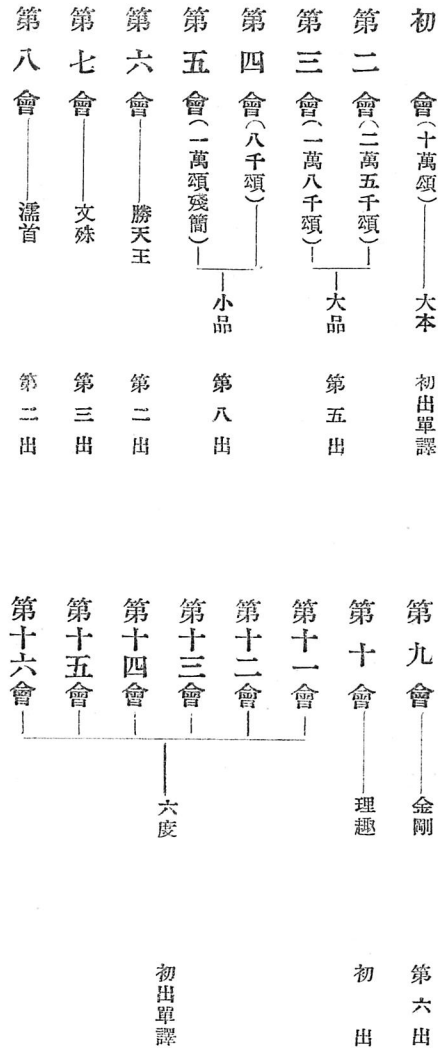 初會(十萬頌)大本 初出單譯
第二會(二萬五千頌)
第三會(一萬八千頌)
大品 第五出
第四會(八千頌)
第五會(一萬頌殘簡)
小品 第八出
第六會 勝天王 第二出
第七會 文殊 第三出
第八會 濡首 第二出
第九會 金剛 第六出
第十會 理趣 初出
第十一會
第十二會
第十三會
第十四會
第十五會
第十六會
六度 初出單譯